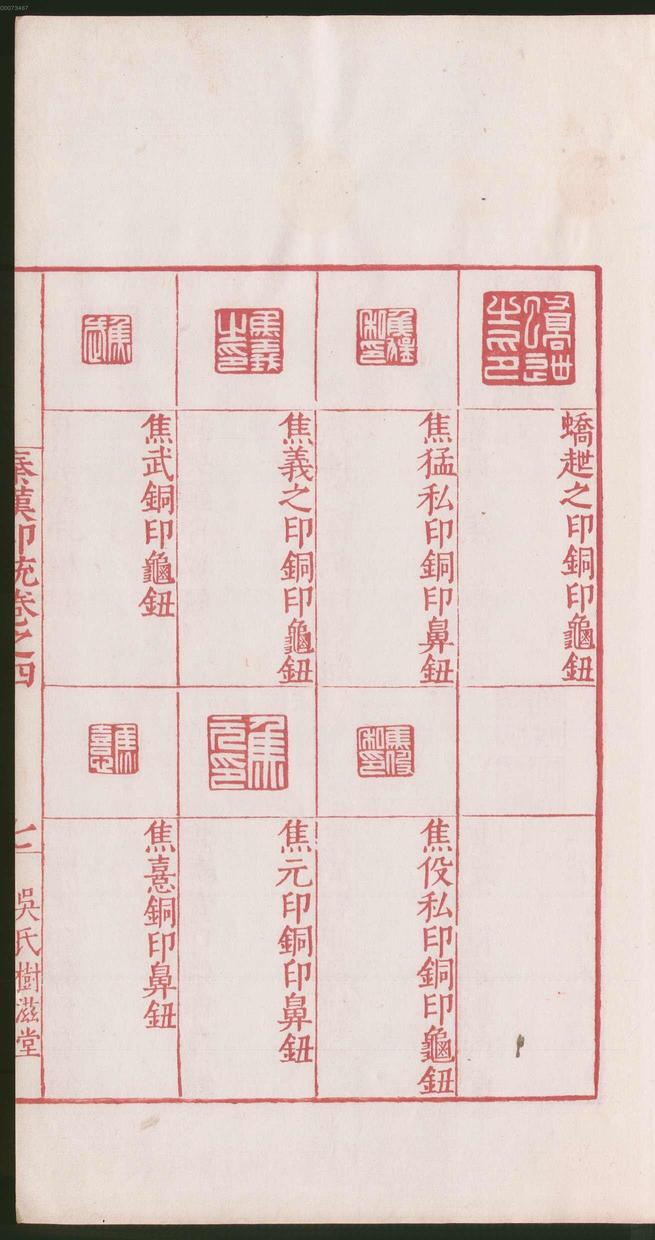 00073467
蟜趉之印銅印龜鈕
焦猛私印銅印鼻鈕
焦役私印銅印龜鈕
焦義之印銅印龜鈕
焦元印銅印鼻鈕
焦武銅印龜鈕
焦憙銅印鼻鈕
秦漢印統卷之四
七
吳氏樹滋堂